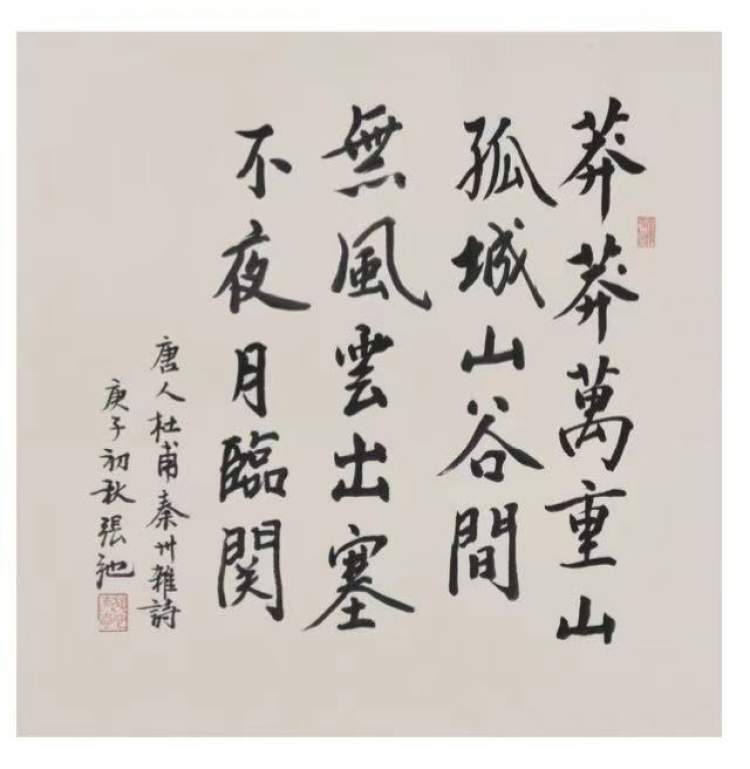 莽莽萬重山
孤城山谷間
無風雲出塞
不夜月臨関
唐人杜甫秦州雜詩
庚子初秋張